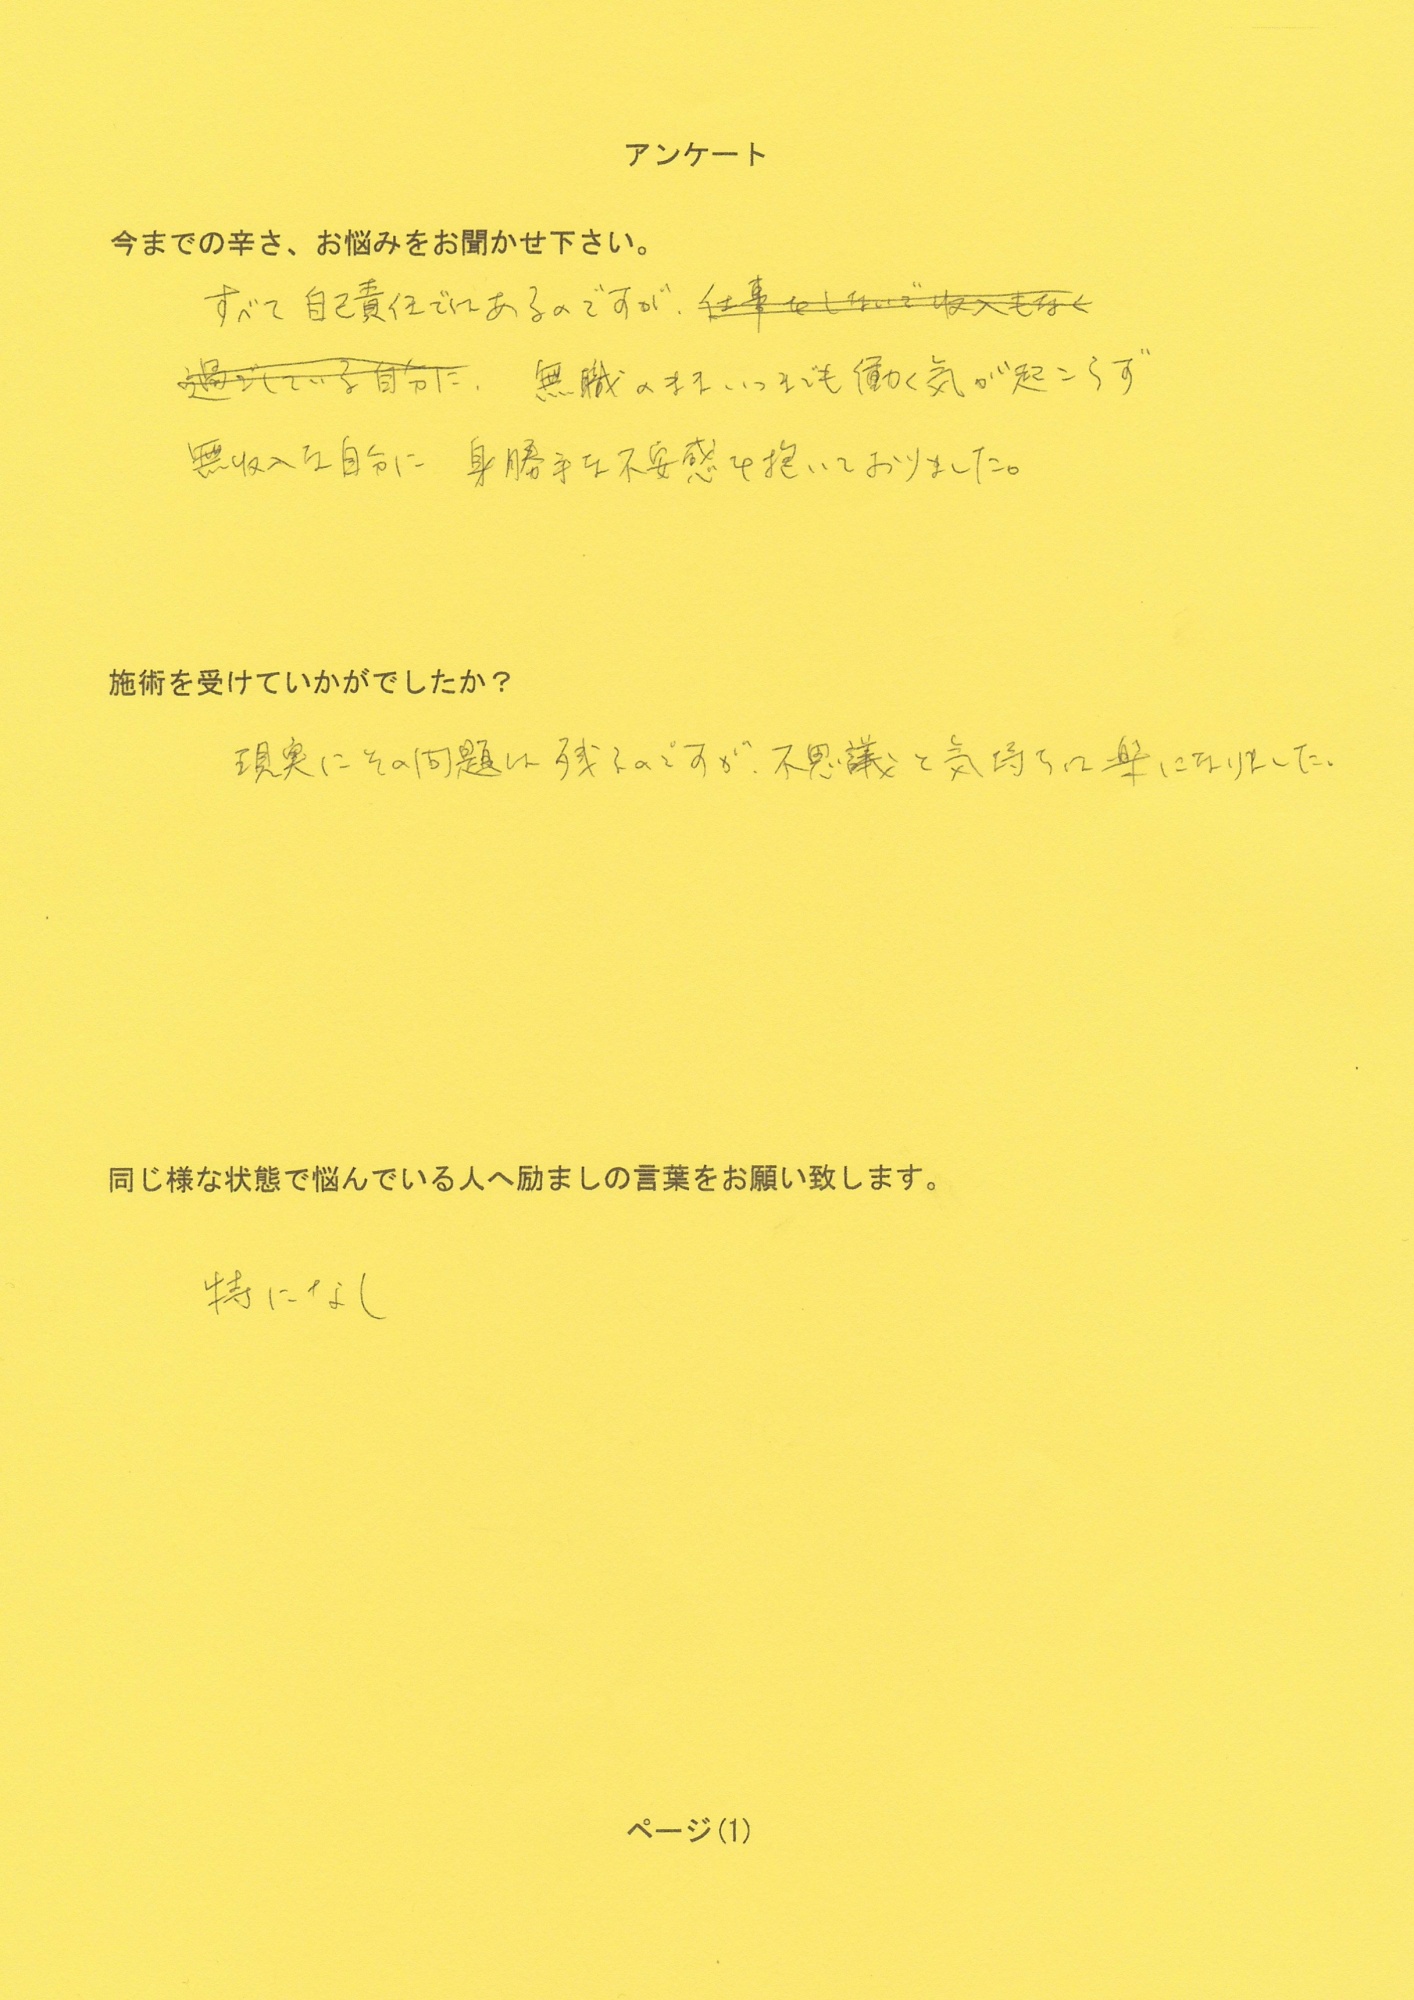 アンケート
今までの辛さ、お悩みをお聞かせ下さい。
すべて自己責任ではあるのですが、仕事をしないで収入もなく
過ごしている自分に、無職のままいつまでも働く気が起こらず
無収入な自分に 身勝手な不安感を抱いておりました。
施術を受けていかがでしたか？
現実にその問題は残るのですが、不思議と気持ちは楽になりました。
同じ様な状態で悩んでいる人へ励ましの言葉をお願い致します。
特になし
ページ(1)